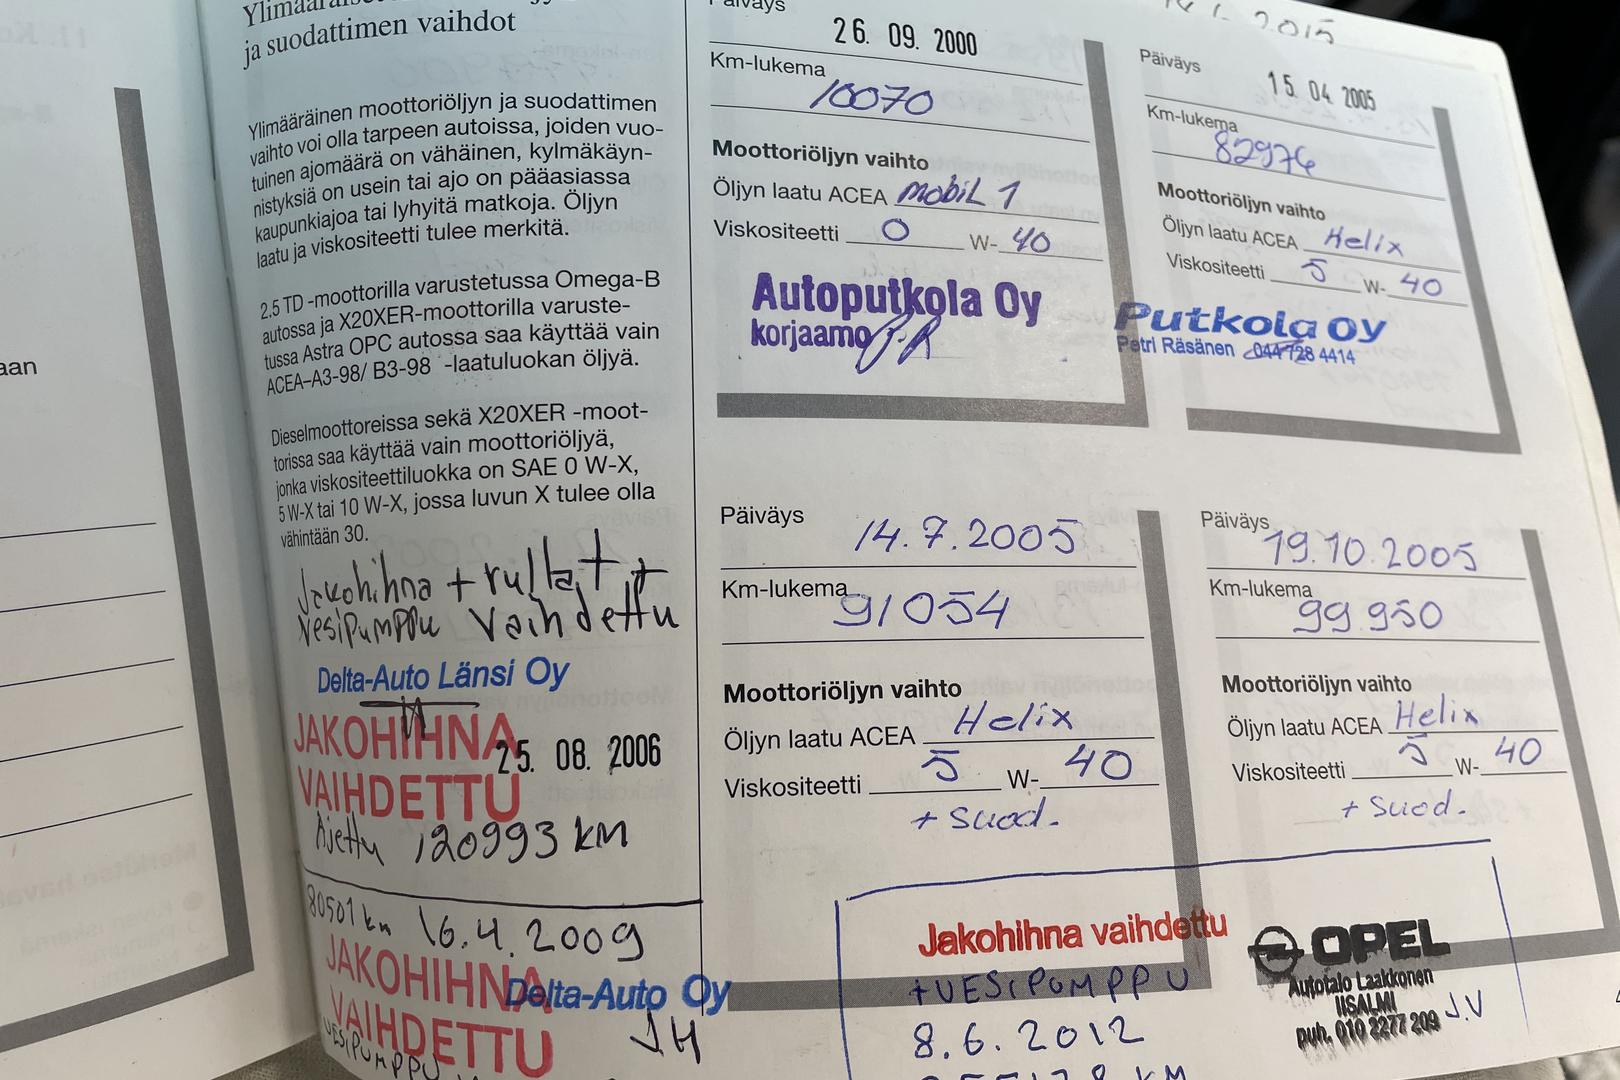 ja suodattimen vaihdot
Ylimääräinen moottoriöljyn ja suodattimen
vaihto voi olla tarpeen autoissa, joiden vuo-
tuinen ajomäärä on vähäinen, kylmäkäyn-
nistyksiä on usein tai ajo on pääasiassa
kaupunkiajoa tai lyhyitä matkoja. Öljyn
laatu ja viskositeetti tulee merkitä.
2.5 TD -moottorilla varustetussa Omega-B
autossa ja X20XER-moottorilla varuste-
tussa Astra OPC autossa saa käyttää vain
ACEA–A3-98/ B3-98 -laatuluokan öljyä.
Dieselmoottoreissa sekä X20XER -moot-
torissa saa käyttää vain moottoriöljyä,
jonka viskositeettiluokka on SAE 0 W-X,
5 W-X tai 10 W-X, jossa luvun X tulee olla
vähintään 30.
Jakohihna + rullat +
vesipumppu vaihdettu
Delta-Auto Länsi Oy
JAKOHIHNA
VAIHDETTU
25. 08. 2006
Ajettu 120993 km
80501 km 16.4.2009
JAKOHIHNA
VAIHDETTU
Delta-Auto Oy
JH
VESIPUMPPU
Päiväys
26. 09. 2000
Km-lukema
10070
Moottoriöljyn vaihto
Öljyn laatu ACEA mobiL 1
Viskositeetti 0 W- 40
Autoputkola Oy
korjaamo
2015
Päiväys
15. 04 2005
Km-lukema
82976
Moottoriöljyn vaihto
Öljyn laatu ACEA Helix
Viskositeetti 5 W- 40
Putkola oy
Petri Räsänen 044 728 4414
Päiväys 14.7.2005
Km-lukema 91054
Moottoriöljyn vaihto
Öljyn laatu ACEA Helix
Viskositeetti 5 W- 40
+ suod.
Päiväys 19.10.2005
Km-lukema 99950
Moottoriöljyn vaihto
Öljyn laatu ACEA Helix
Viskositeetti 5 W- 40
+ suod.
Jakohihna vaihdettu
+VESIPUMPPU
8.6.2012
KM
OPEL
Autotalo Laakkonen
IISALMI
puh. 010 2277 209
J.V